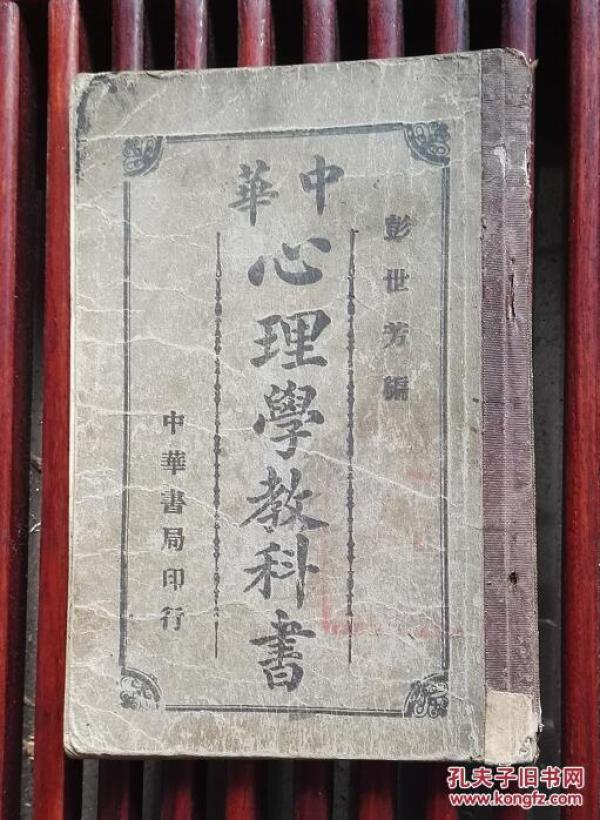 彭世芳編
中華
心理學教科書
中華書局印行
孔夫子旧书网
www.kongfz.com